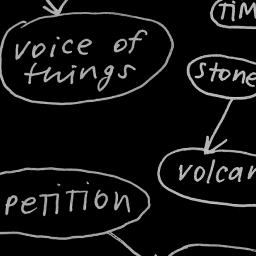 voice of
things
TiM
stone
volcan
PETITION